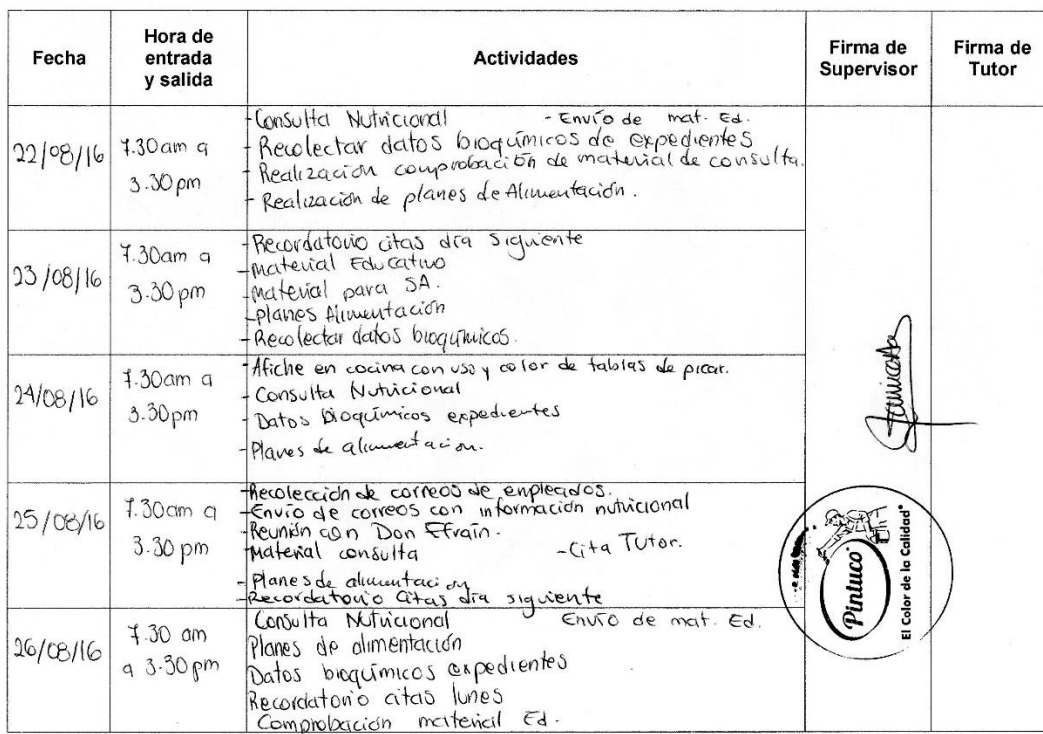 Fecha
Hora de
entrada
y salida
Actividades
Firma de
Supervisor
Firma de
Tutor
22/08/16
7.30am a
3.30 pm
- Consulta Nutricional - Envío de mat. Ed.
- Recolectar datos bioquímicos de expedientes
- Realización comprobación de material de consulta.
- Realización de planes de Alimentación.
23/08/16
7.30am a
3.30 pm
- Recordatorio citas día siguiente
- Material Educativo
- Material para SA.
- planes Alimentación
- Recolectar datos bioquímicos.
24/08/16
7.30am a
3.30pm
- Afiche en cocina con uso y color de tablas de picar.
- Consulta Nutricional
- Datos Bioquímicos expedientes
- Planes de alimentacion.
25/08/16
7.30am a
3.30 pm
- Recolección de correos de empleados.
- Envío de correos con información nutricional
- Reunión con Don Efraín.
- Material consulta - Cita Tutor.
- Planes de alimentación
- Recordatorio Citas día siguiente
Pintuco
El Color de la Calidad
26/08/16
7.30 am
a 3.30 pm
Consulta Nutricional Envío de mat. Ed.
Planes de alimentación
Datos bioquímicos expedientes
Recordatorio citas lunes
Comprobación material Ed.